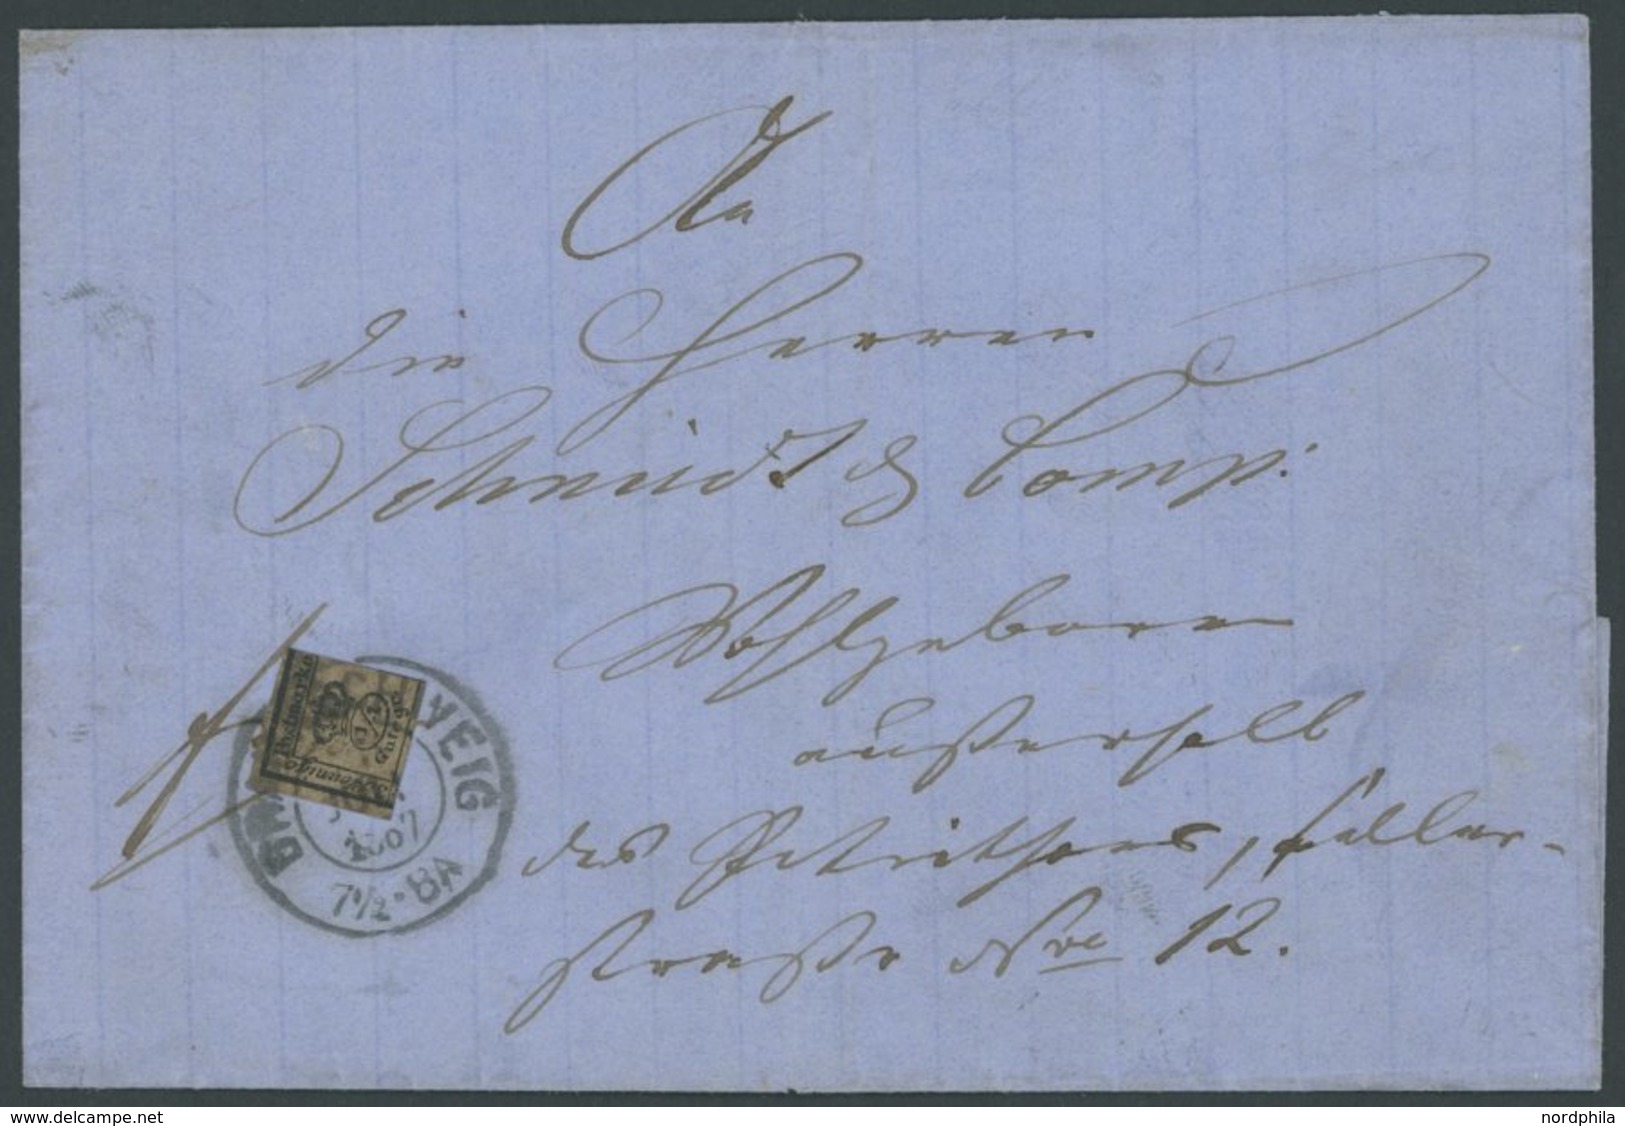 An
die Herren
Schmidt & Comp:
Wohlgeboren
außerhalb
des Petrithores, Celler-
straße Nro 12.
Postmarke
1/4
Guteg
pfennige
VEIG
1867
7½-8A
delcampe.net
nordphila